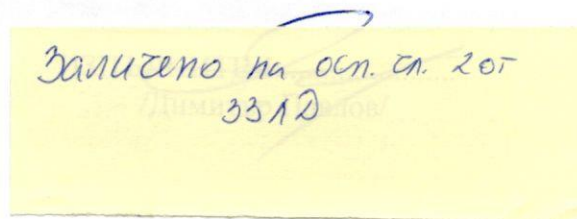 Заличено на осн. чл. 2 от
ЗЗЛД